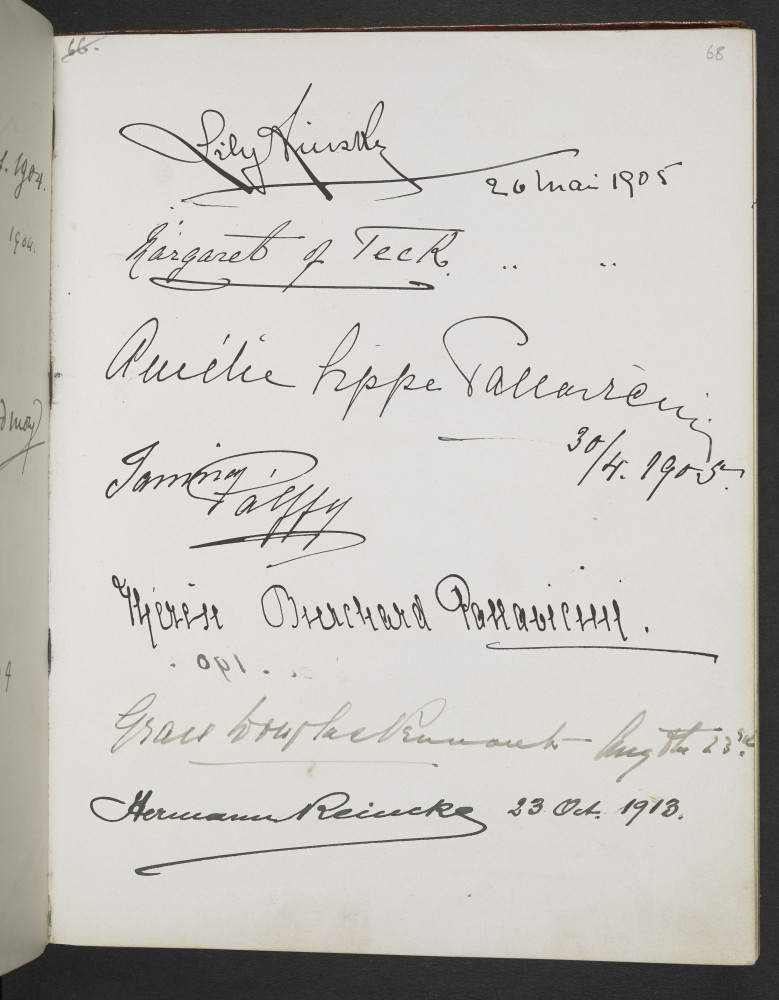 66.
68
Lily Kinsky
20 Mai 1905
Margaret of Teck. " "
Amélie Lippe Pallavicini
30/4. 1905.
Pálffy
Thérèse Burchard Pallavicini.
Grace Douglas Pennant Aug the 23rd
Hermann Reincke 23 Oct. 1913.